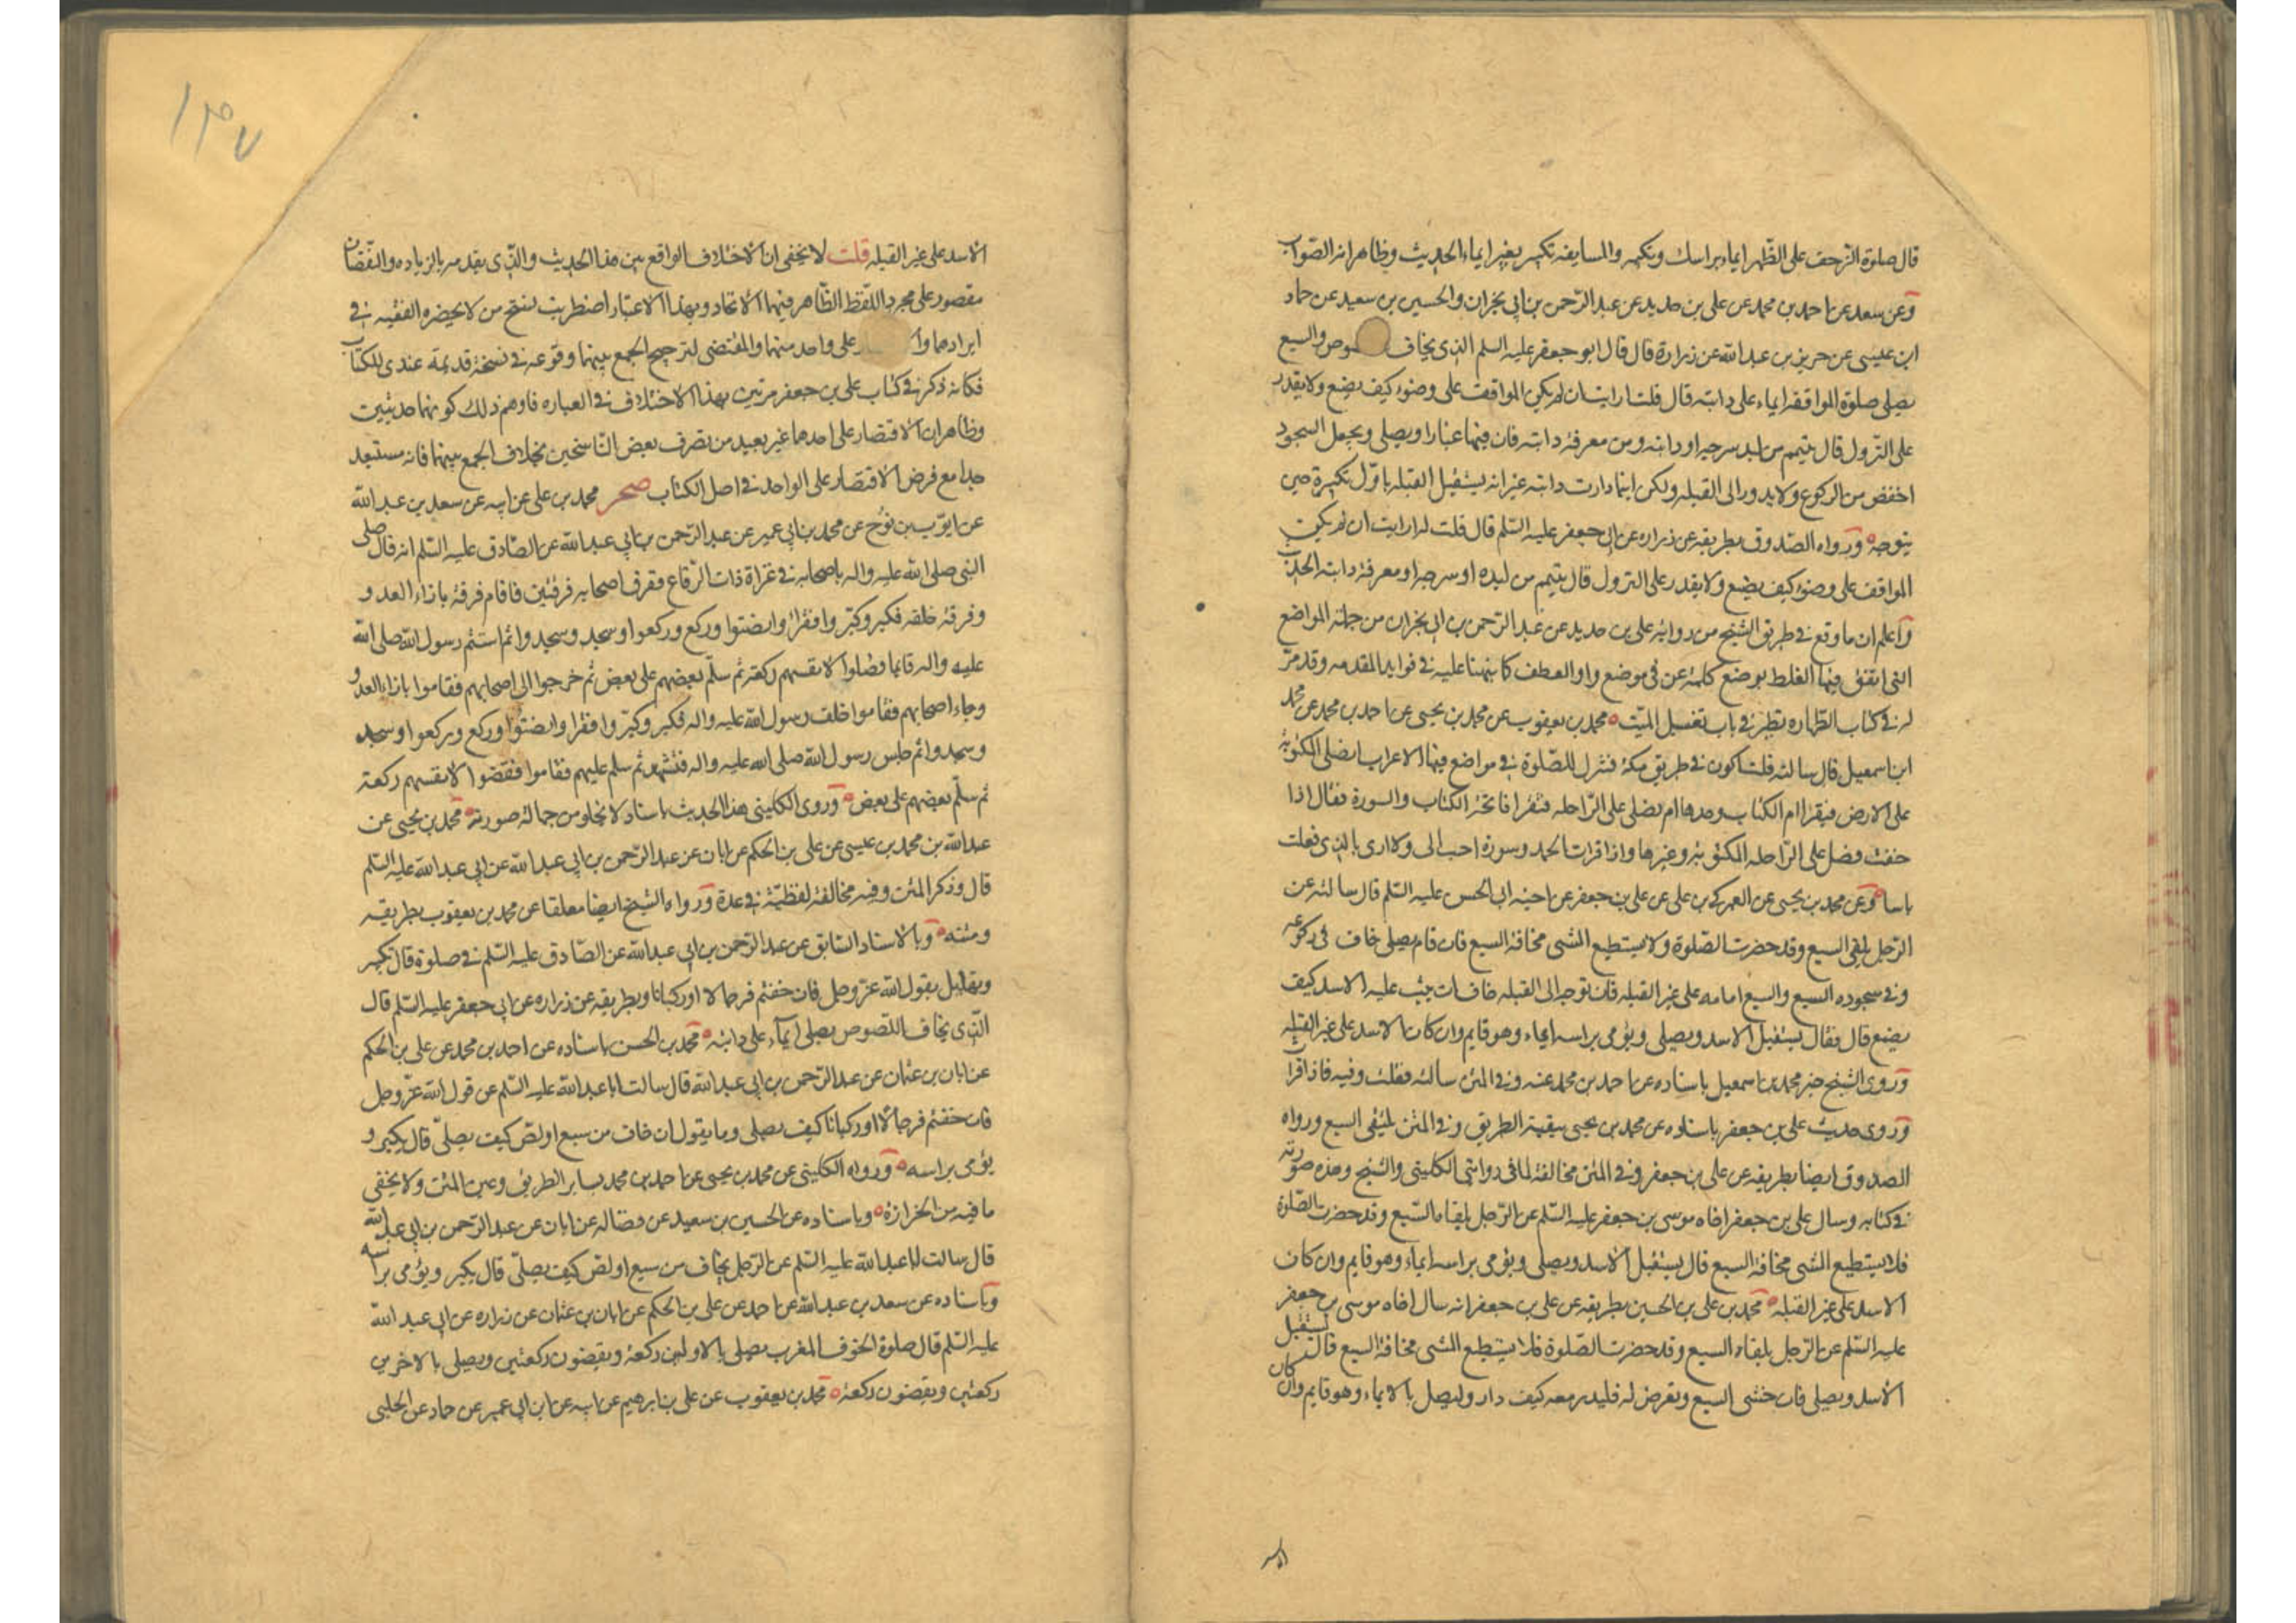 قال صلوة الزحف على الظهر ايماء براسك وتكبير والمسايفه تكبير بغير ايماء الحديث وظاهر انه الصواب
وعن سعد عن احمد بن محمد عن على بن حديد عن عبد الرّحمن بن ابى نجران والحسين بن سعيد عن حماد
ابن عيسى عن حريز بن عبد الله عن زرارة قال قال ابو جعفر عليه السلم الذى يخاف صوص والسبع
يصلى صلوة المواقفه ايماء على دابته قال قلت ارايت ان لم يكن المواقف على وضوء كيف يصنع ولا يقدر
على النزول قال يتيمم من لبد سرجه او دابته ومن معرفة دابته فان فيها غبارا ويصلى ويجعل السجود
اخفض من الركوع ولا يدور الى القبله ولكن اينما دارت دابته غير انه يستقبل القبله باوّل تكبيرة حين
يتوجه ورواه الصّدوق بطريقه عن زراره عن ابى جعفر عليه السّلم قال قلت له ارايت ان لم يكن
المواقف على وضوء كيف يصنع ولا يقدر على النزول قال يتيمم من لبده او سرجه او معرفة دابته الحديث
واعلم ان ما وقع فى طريق الشيخ من رواية على بن حديد عن عبد الرّحمن بن ابى نجران من جملة المواضع
التى اتفق فيها الغلط بوضع كلمة عن فى موضع واو العطف كما نبهنا عليه فى فوايد المقدمه وقد مرّ
له فى كتاب الطهاره نظير فى باب تغسيل الميّت محمد بن يعقوب عن محمد بن يحيى عن احمد بن محمد عن محمد
ابن اسمعيل قال سالته قلت اكون فى طريق مكة فننزل للصّلوة فى مواضع فيها الاعراب ايصلى المكتوبة
على الارض فيقرا ام الكتاب وحدها ام يصلى على الرّاحله فتقرا فاتحة الكتاب والسورة فقال اذا
خفت فصل على الرّاحله المكتوبة وغيرها واذا قرات الحمد وسورة احب الى ولا ارى بالذى فعلت
باسا وعن محمد بن يحيى عن العمركى بن على عن على بن جعفر عن اخيه ابى الحسن عليه السّلم قال سالته عن
الرّجل يلقى السبع وقد حضرت الصّلوة ولا يستطيع المشى مخافة السبع فان قام يصلى خاف فى ركوعه
وفى سجوده السبع والسبع امامه على غير القبله فان توجه الى القبله خاف ان يثب عليه الاسد كيف
يصنع قال فقال يستقبل الاسد ويصلى ويؤمى براسه ايماء وهو قايم وان كان الاسد على غير القبله
وروى الشيخ خبر محمد بن اسمعيل باسناده عن احمد بن محمد عنه وفى المتن سالته فقلت وفيه فاذا قرا
وروى حديث على بن جعفر باسناده عن محمد بن يحيى ببقية الطريق وفى المتن يلتقى السبع ورواه
الصدوق ايضا بطريقه عن على بن جعفر وفى المتن مخالفة لما فى روايتى الكلينى والشيخ وهذه صورته
فى كتابه وسال على بن جعفر اخاه موسى بن جعفر عليه السّلم عن الرّجل يلقاه السّبع وقد حضرت الصّلوة
فلا يستطيع المشى مخافة السبع قال يستقبل الاسد ويصلى ويؤمى براسه ايماء وهو قايم وان كان
الاسد على غير القبله محمد بن على بن الحسين بطريقه عن على بن جعفر انه سال اخاه موسى بن جعفر
عليه السّلم عن الرّجل يلقاه السبع وقد حضرت الصّلوة فلا يستطيع المشى مخافة السبع قال يستقبل
الاسد ويصلى فان خشى السبع وتعرض له فليدر معه كيف دار وليصل بالايماء وهو قايم وان كان
الاسد
١٣٧
الاسد على غير القبله قلت لا يخفى ان الاختلاف الواقع بين هذا الحديث والذى بقدمه بالزياده والنقصان
مقصور على مجرد اللّفظ الظّاهر فيهما الاتحاد وبهذا الاعتبار اضطربت نسخ من لا يحضره الفقيه فى
ايرادهما وا على واحد منهما والمقتضى لترجيح الجمع بينهما وقوعه فى نسخة قديمة عندى للكتاب
فكانه ذكر فى كتاب على بن جعفر مرتين بهذا الاختلاف فى العباره فاوهم ذلك كونهما حديثين
وظاهر ان الاقتصار على احدهما غير بعيد من تصرف بعض النّاسخين بخلاف الجمع بينهما فانه مستبعد
جدا مع فرض الاقتصار على الواحد فى اصل الكتاب صحر محمد بن على عن ابيه عن سعد بن عبد الله
عن ايّوب بن نوح عن محمد بن ابى عمير عن عبد الرّحمن بن ابى عبد الله عن الصّادق عليه السّلم انه قال صلى
النبى صلى الله عليه واله باصحابه فى غزاة ذات الرّقاع ففرق اصحابه فرقتين فاقام فرقة بازاء العدو
وفرقة خلفه فكبر وكبّروا فقرا وانصتوا وركع وركعوا وسجد وسجدوا ثم استتم رسول الله صلى الله
عليه واله قايما فصلوا لانفسهم ركعة ثم سلّم بعضهم على بعض ثم خرجوا الى اصحابهم فقاموا بازاء العدو
وجاء اصحابهم فقاموا خلف رسول الله عليه واله فكبر وكبّروا فقرا وانصتوا وركع وركعوا وسجد
وسجدوا ثم جلس رسول الله صلى الله عليه واله فتشهد ثم سلم عليهم فقاموا فقضوا لانفسهم ركعة
ثم سلّم بعضهم على بعض وروى الكلينى هذا الحديث باسناد لا يخلو من جهالة صورته محمد بن يحيى عن
عبد الله بن محمد بن عيسى عن على بن الحكم عن ابان عن عبد الرّحمن بن ابى عبد الله عن ابى عبد الله عليه السّلم
قال وذكر المتن وفيه مخالفة لفظيّة فى عدة ورواه الشيخ ايضا معلقا عن محمد بن يعقوب بطريقه
ومتنه وبالاسناد السّابق عن عبد الرّحمن بن ابى عبد الله عن الصّادق عليه السّلم فى صلوة قال تكبر
وتهلل يقول الله عزّ وجل فان خفتم فرجالا او ركبانا وبطريقه عن زراره عن ابى جعفر عليه السّلم قال
الّذى يخاف اللّصوص يصلى ايماء على دابته محمد بن الحسن باسناده عن احمد بن محمد عن على بن الحكم
عن ابان بن عثمان عن عبد الرّحمن بن ابى عبد الله قال سالت ابا عبد الله عليه السّلم عن قول الله عزّ وجل
فان خفتم فرجالا او ركبانا كيف يصلى وما يقول ان خاف من سبع او لصّ كيف يصلّى قال يكبر و
يؤمى براسه ورواه الكلينى عن محمد بن يحيى عن احمد بن محمد بساير الطريق وعين المتن ولا يخفى
ما فيه من الحزازة وباسناده عن الحسين بن سعيد عن فضاله عن ابان عن عبد الرّحمن بن ابى عبد الله
قال سالت ابا عبد الله عليه السّلم عن الرّجل يخاف من سبع او لصّ كيف يصلّى قال يكبر ويؤمى براسه
وباسناده عن سعد بن عبد الله عن احمد عن على بن الحكم عن ابان بن عثمان عن زراره عن ابى عبد الله
عليه السّلم قال صلوة الخوف المغرب يصلى بالاولين ركعة ويقضون ركعتين ويصلى بالاخرين
ركعتين ويقضون ركعة محمد بن يعقوب عن على بن ابرهيم عن ابيه عن ابن ابى عمير عن حماد عن الحلبى